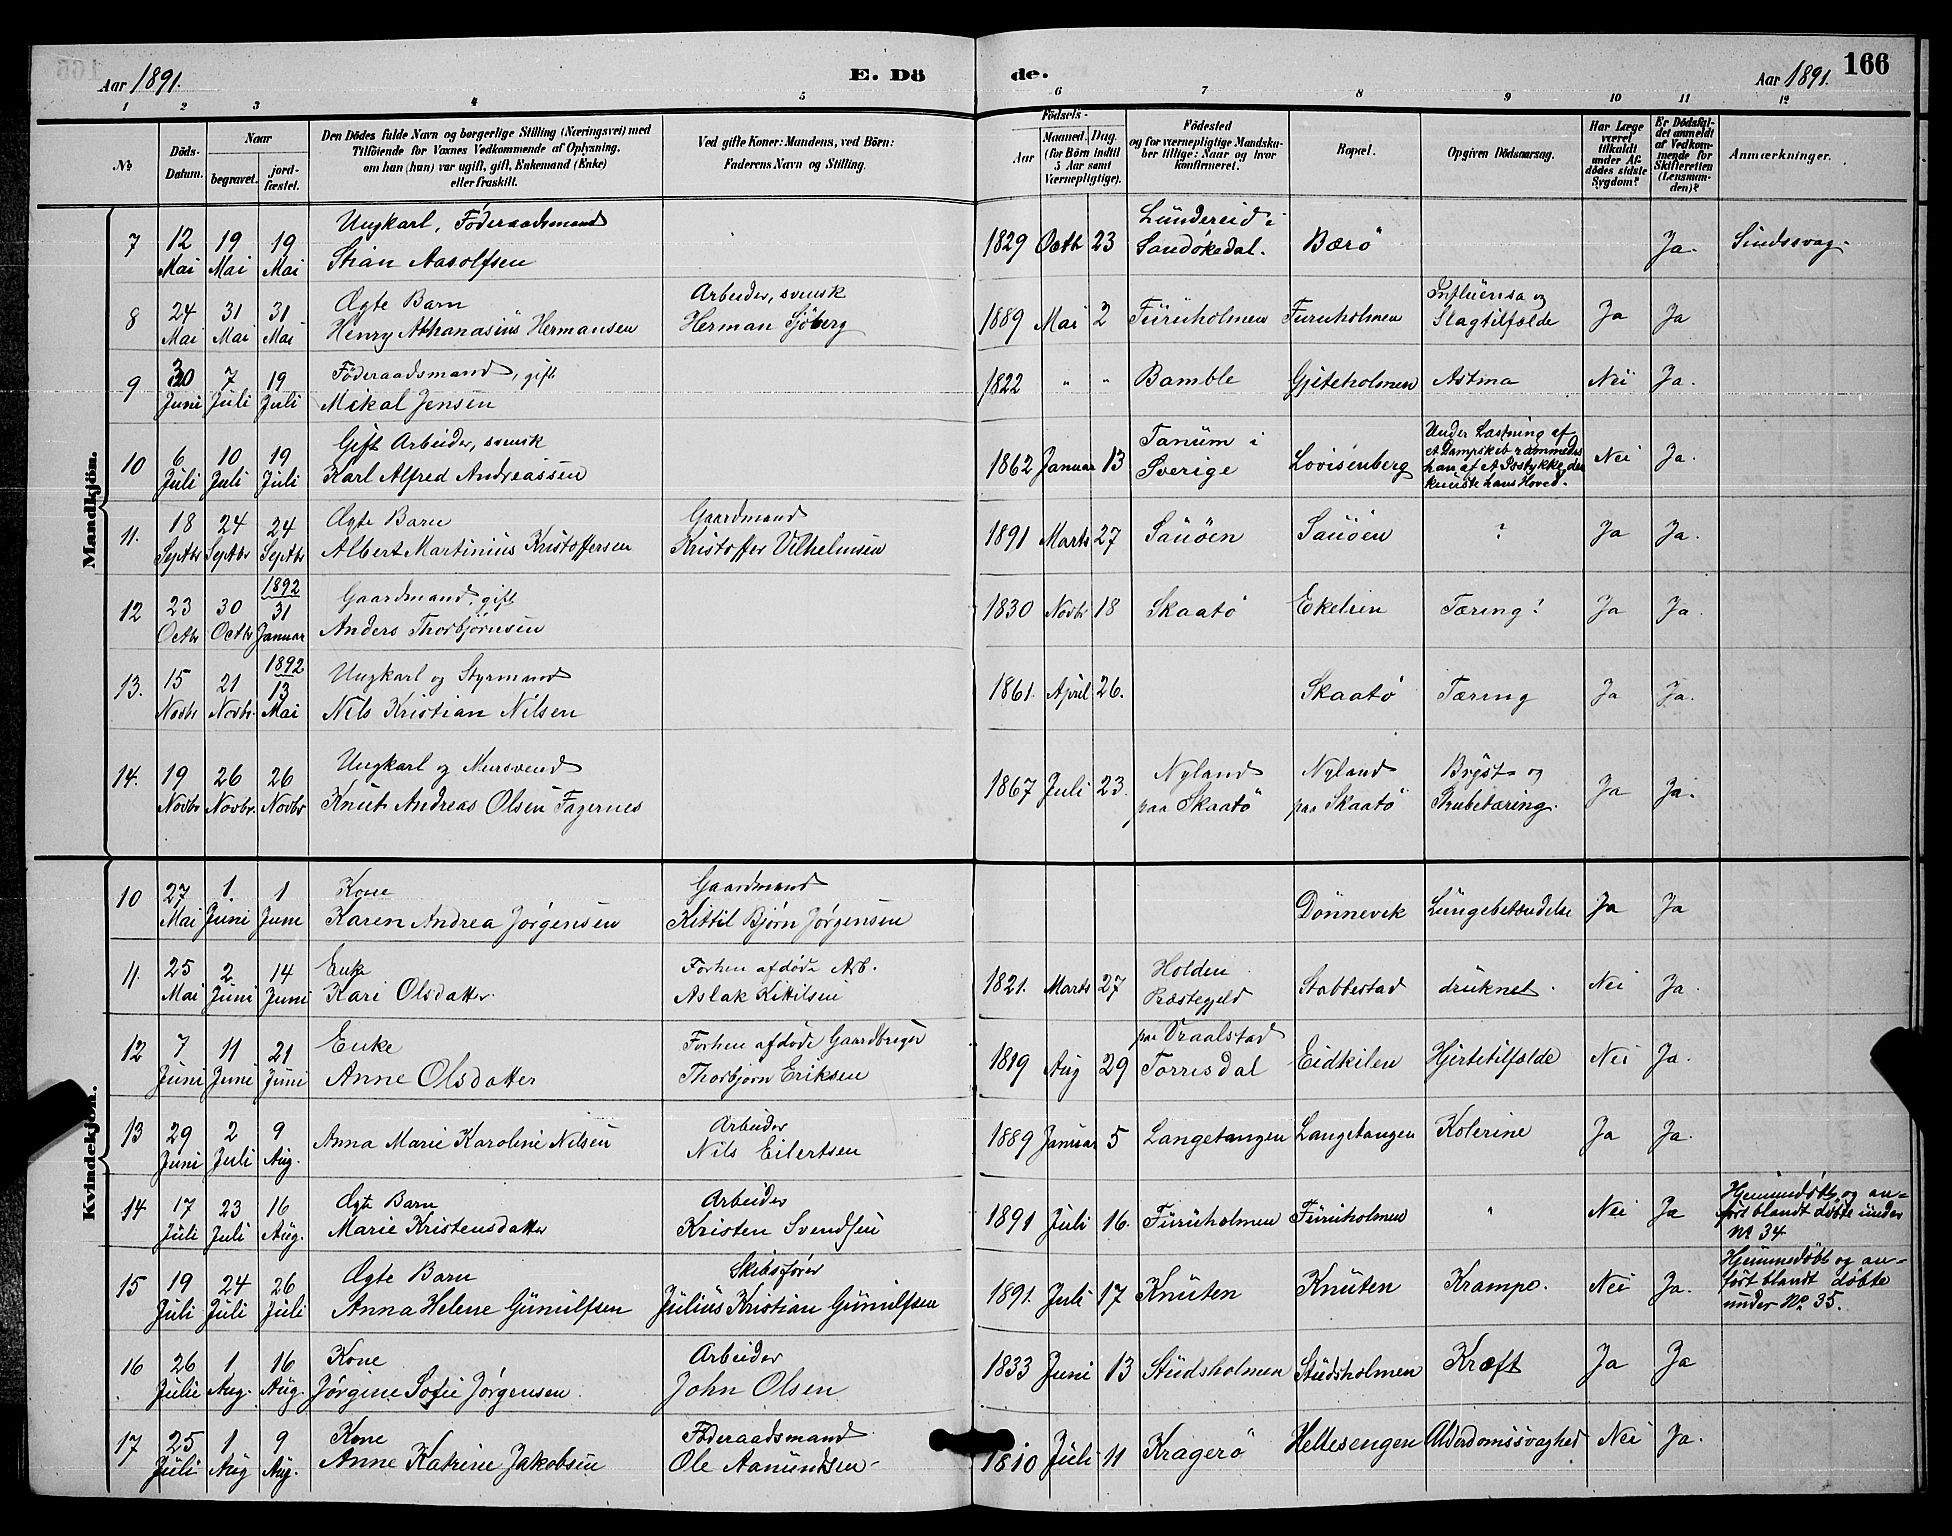 Aar 1891.
E. Dö
de.
Aar 1891.
166
1 2 3 4 5 6 7 8 9 10 11 12
No
Döds-Datum.
Naar
begravet.
jord-fæstet.
Den Dödes fulde Navn og borgerlige Stilling (Næringsvei) med
Tilföiende for Voxnes Vedkommende af Oplysning,
om han (hun) var ugift, gift, Enkemand (Enke)
eller fraskilt.
Ved gifte Koner: Mandens, ved Börn:
Faderens Navn og Stilling.
Födsels-
Aar
Maaned. Dag.
(for Børn indtil
5 Aar samt
Værnepligtige).
Födested
og for værnepligtige Mandska-
ber tillige: Naar og hvor
konfirmeret.
Bopæl.
Opgiven Dödsaarsag.
Har Læge
været
tilkaldt
under Af-
dödes sidste
Sygdom?
Er Dödsfal-
det anmeldt
af Vedkom-
mende for
Skifteretten
(Lensman-
den)?
Anmærkninger.
Mandkjön.
7 12 Mai 19 Mai 19 Mai Ungkarl, Föderaadsmand
Stian Aasolfsen
1829 Octb 23 Lundereid i
Sandökedal. Bærö Ja. Sindssvag.
8 24 Mai 31 Mai 31 Mai Ægte Barn
Henry Athanasius Hermansen
Arbeider, svensk
Herman Sjöberg
1889 Mai 2 Furuholmen Furuholmen Influensa og
Slagtilfælde Ja Ja
9 30 Juni 7 Juli 19 Juli Föderaadsmand, gift
Mikal Jensen
1822 " " Bamble Gjeteholmen Astma Nei Ja.
10 6 Juli 10 Juli 19 Juli Gift Arbeider, svensk
Karl Alfred Andreassen
1862 Januar 13 Tanum i
Sverige Lovisenberg
Under Lastning af
et Dampskib rammedes
han af et Isstykke, der
knuste hans Hoved.
Nei Ja.
11. 18 Septbr 24 Septbr 24 Septbr Ægte Barn
Albert Martinius Kristoffersen
Gaardmand
Kristoffer Vilhelmsen
1891 Marts 27 Sauöen Sauöen ? Ja Ja.
12 23 Octbr 30 Octbr 1892 31 Januar Gaardmand, gift
Anders Thorbjörnsen
1830 Novbr 18 Skaatö Ekelien Tæring? Ja Ja.
13. 15 Novbr 21 Novbr. 1892 13 Mai Ungkarl og Styrmand
Nils Kristian Nilsen
1861. April 26. Skaatö Tæring Ja Ja.
14. 19 Novbr 26 Novbr. 26 Novbr Ungkarl og Mursvend
Knut Andreas Olsen Fagernes
1867 Juli 23. Nyland
paa Skaatö
Nyland
paa Skaatö
Bryst- og
Strubetæring. Ja Ja.
Kvindekjön.
10 27 Mai 1. Juni 1 Juni Kone
Karen Andrea Jörgensen
Gaardmand
Kittil Björn Jörgensen
Dönnevik Lungebetændelse Ja Ja
11. 25 Mai 2 Juni 14 Juni Enke
Kari Olsdatter.
Forhen afdöde Arb.
Aslak Kittilsen
1821. Marts 27 Holden
Præstegjeld Stabbestad druknet. Nei Ja.
12 7 Juni 11 Juni 21 Juni Enke
Anne Olsdatter
Forhen afdöde Gaardbruger
Thorbjörn Eriksen
1819 Aug 29 paa Vraalstad
Torrisdal Eidkilen Hjertetilfælde Nei Ja.
13 29 Juni 2 Juli 9 Aug. Anna Marie Karoline Nilsen
Arbeider
Nils Eilertsen
1889 Januar 5 Langetangen Langetangen Kolerine Ja Ja.
14 17 Juli 23 Juli 16 Aug. Ægte Barn
Marie Kristensdatter
Arbeider
Kristen Svendsen
1891 Juli 16. Furuholmen Furuholmen " Nei Ja
Hjemmedöbt og an-
fört blandt döbte under
No 34
15 19 Juli 24 Juli 26 Juli Ægte Barn
Anna Helene Gunulfsen
Skibsförer
Julius Kristian Gunulfsen
1891. Juli 17 Knuten Knuten Krampe. Nei Ja.
Hjemmedöbt og an-
fört blandt döbte
under No 35.
16 26 Juli 1 Aug. 16 Aug. Kone
Jörgine Sofie Jörgensen.
Arbeider
John Olsen
1833 Juni 13 Studsholmen Studsholmen Kræft Ja Ja
17 25 Juli 1 Aug 9 Aug. Kone
Anne Katrine Jakobsen
Föderaadsmand
Ole Aanundsen
1810 Juli 11 Kragerö Hellesengen Alderdomssvaghed Nei Ja.